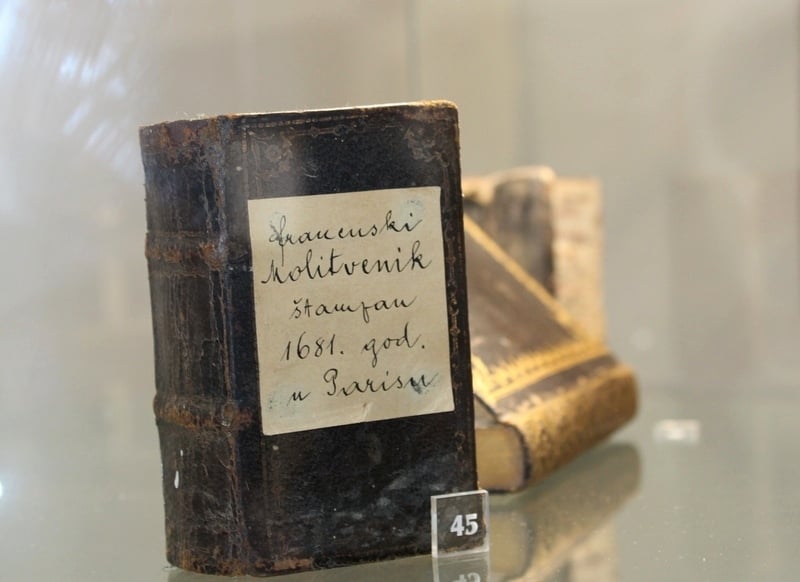 francuski
Molitvenik
štampan
1681. god.
u Parisu
45